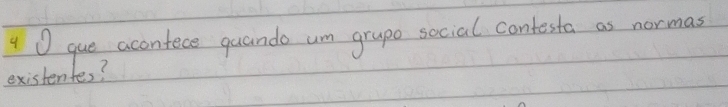 4 O que acontece quando um grupo social contesta as normas
existentes?